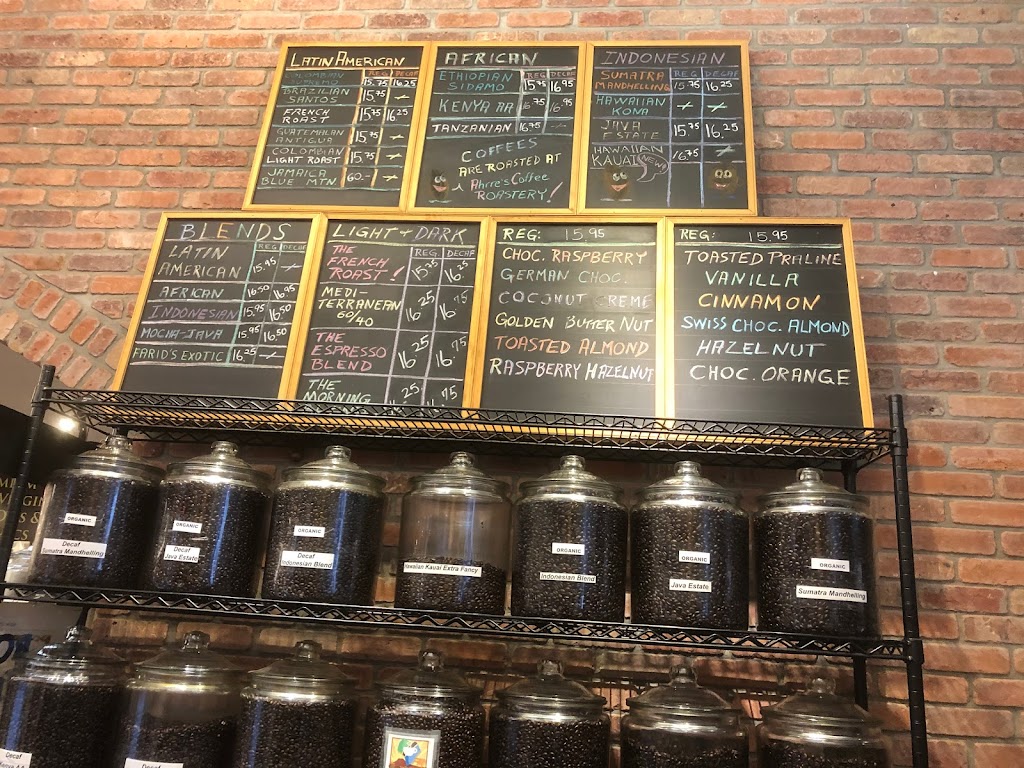 LATIN AMERICAN
REG. DECAF
COLOMBIAN
SUPREMO 15.75 16.25
BRAZILIAN
SANTOS 15.75
FRENCH
ROAST 15.75 16.25
GUATEMALAN
ANTIGUA 15.75
COLOMBIAN
LIGHT ROAST 15.75
JAMAICA
BLUE MTN 60.-
AFRICAN
REG DECAF
ETHIOPIAN
SIDAMO 15.75 16.95
KENYA AA 16.75 16.95
TANZANIAN 16.75
COFFEES
ARE ROASTED AT
Ahrre's Coffee
ROASTERY!
INDONESIAN
REG DECAF
SUMATRA
MANDHELLING 15.75 16.25
HAWAIIAN
KONA
JAVA
ESTATE 15.75 16.25
HAWAIIAN
KAUAI NEW! 16.75
BLENDS
REG. DECAF
LATIN
AMERICAN 15.95
AFRICAN 16.50 16.95
INDONESIAN 15.95 16.50
MOCHA-JAVA 15.95 16.50
FARID'S EXOTIC 16.25
LIGHT + DARK
REG. DECAF
THE
FRENCH
ROAST! 15.75 16.25
MEDI-
TERRANEAN
60/40 16.25 16.75
THE
ESPRESSO
BLEND 16.25 16.75
THE
MORNING 16.25 16.75
REG: 15.95
CHOC. RASPBERRY
GERMAN CHOC.
COCONUT CREME
GOLDEN BUTTER NUT
TOASTED ALMOND
RASPBERRY HAZELNUT
REG: 15.95
TOASTED PRALINE
VANILLA
CINNAMON
SWISS CHOC. ALMOND
HAZELNUT
CHOC. ORANGE
ORGANIC
Decaf
Sumatra Mandhelling
ORGANIC
Decaf
Java Estate
ORGANIC
Decaf
Indonesian Blend
Hawaiian Kauai Extra Fancy
ORGANIC
Indonesian Blend
ORGANIC
Java Estate
ORGANIC
Sumatra Mandhelling
Decaf
Decaf